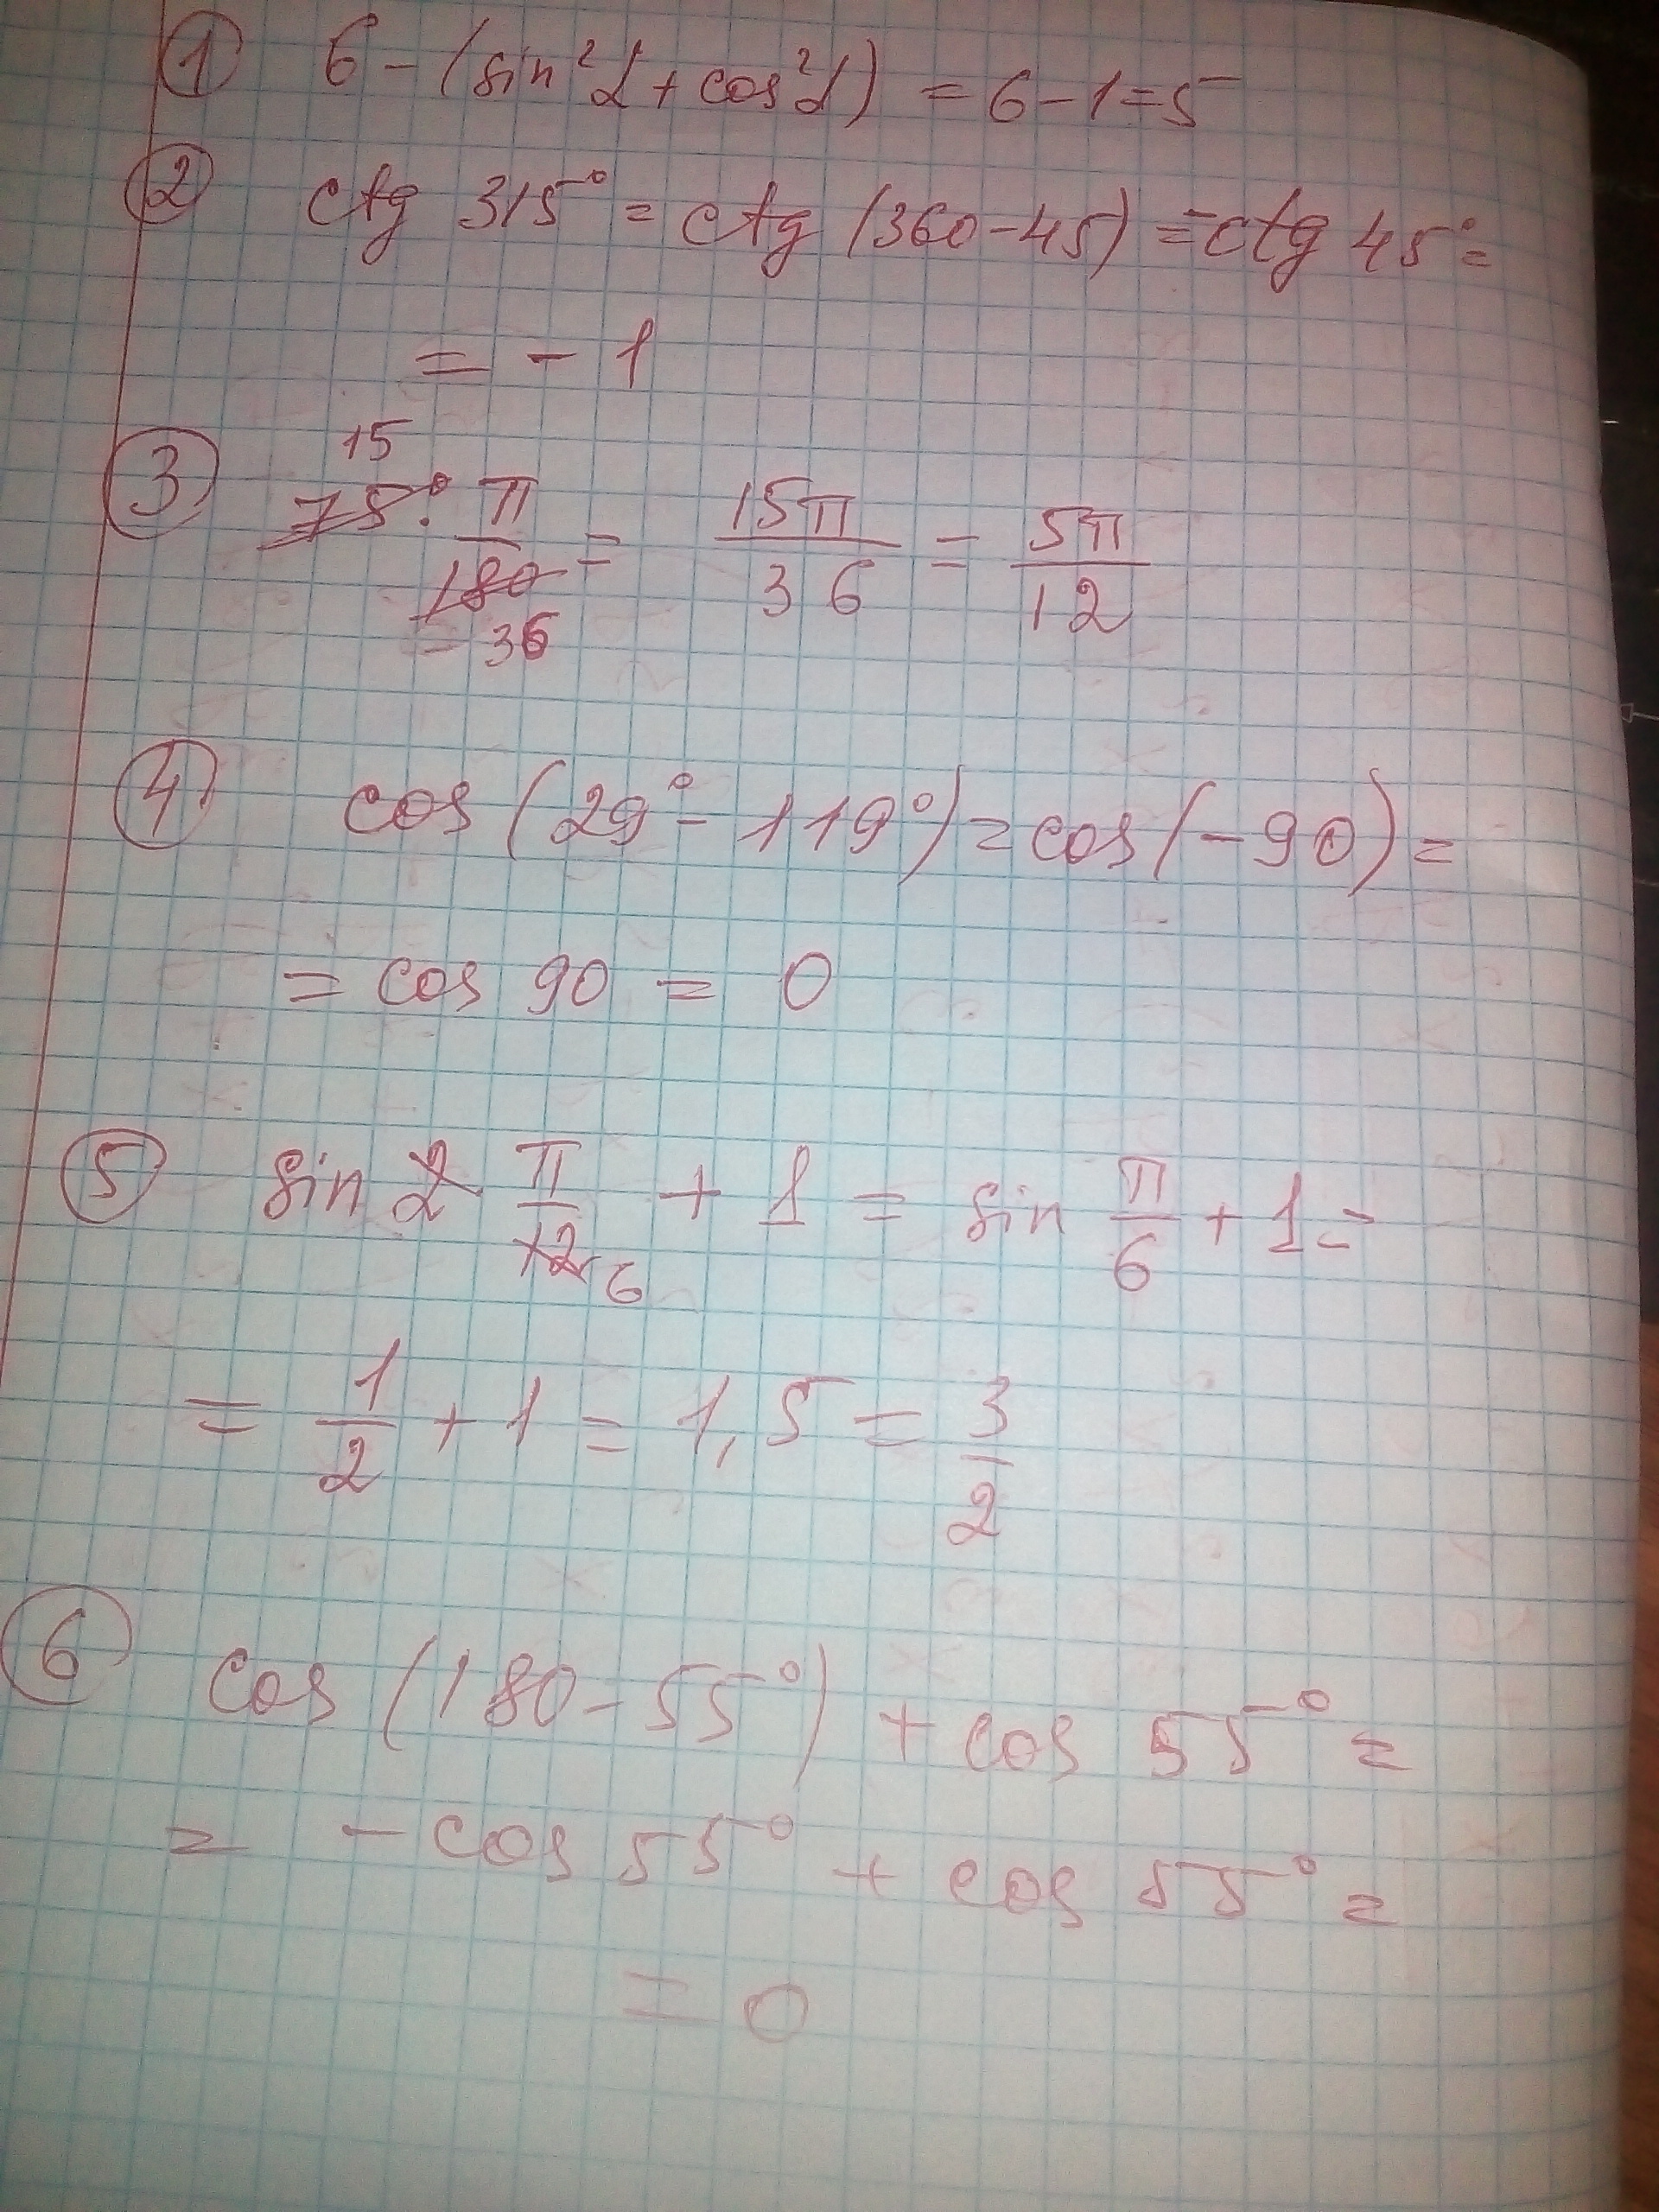 1 6 - (sin²α + cos²α) = 6 - 1 = 5
2 ctg 315° = ctg (360 - 45) = -ctg 45° =
= - 1
15
3 75° · π/180 = 15π/36 = 5π/12
= 36
4 cos (29° - 119°) = cos (-90) =
= cos 90 = 0
5 sin 2 π/12 + 1 = sin π/6 + 1 =
6
= 1/2 + 1 = 1,5 = 3/2
6 cos (180 - 55°) + cos 55° =
= - cos 55° + cos 55° =
= 0